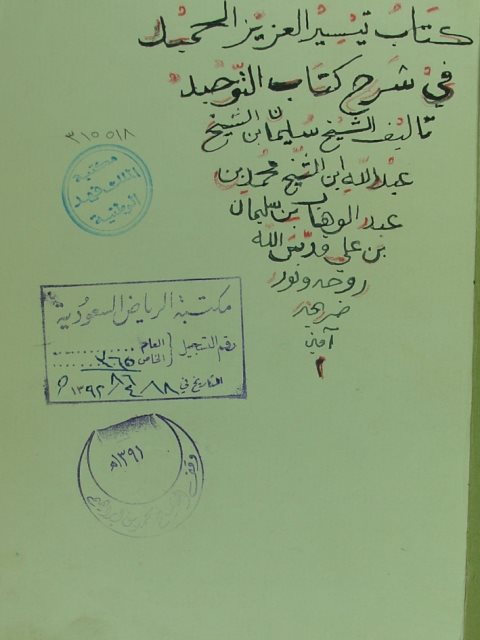 كتاب تيسير العزيز الحميد
في شرح كتاب التوحيد
تاليف الشيخ سليمان ابن الشيخ
عبد الله ابن الشيخ محمد بن
عبد الوهاب بن سليمان
بن علي قدس الله
روحه ونور
ضريحه
آمين
٣١٥٥١٨
مكتبة
الملك فهد
الوطنية
مكتبة الرياض السعودية
رقم التسجيل
العام
الخاص
التاريخ في
١٣٩١هـ
وقف